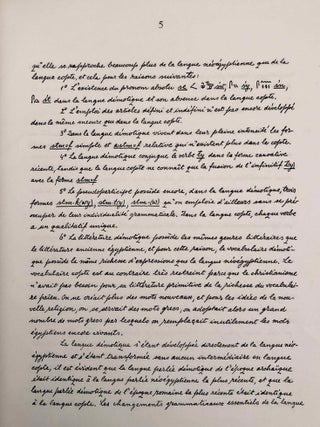 5
qu'elle se rapproche beaucoup plus de la langue néoégyptienne que de la
langue copte, et cela pour les raisons suivantes:
1° L'existence du pronom absolu
dans la langue démotique et son absence dans la langue copte.
2° L'emploi des articles défini et indéfini n'est pas encore développé
dans la même mesure que dans la langue copte.
3° Dans la langue démotique vivent dans leur pleine intensité les for-
mes sḏmf simple et relative qui n'existent plus dans le copte.
4° La langue démotique conjugue le verbe dans la forme causative
récente, tandis que la langue copte ne connaît que la fusion de l'infinitif
avec la forme sḏmof
5° Le pseudoparticipe possède encore, dans la langue démotique, trois
formes qu'on emploie d'ailleurs sans se pré-
occuper de leur individualité grammaticale. Dans la langue copte, chaque verbe
a un qualitatif unique.
6° La littérature démotique possède les mêmes genres littéraires que
la littérature ancienne égyptienne, et pour cette raison, le vocabulaire démoti-
que possède la même richesse d'expressions que la langue néoégyptienne. Le
vocabulaire copte est au contraire très restreint parce que le christianisme
n'avait pas besoin pour sa littérature primitive de la richesse du vocabulai-
re païen. On ne créait plus des mots nouveaux, et pour les idées de la nou-
velle religion, on se servait des mots grecs, on adoptait alors un grand
nombre de mots grecs par lesquels on remplaçait inutilement les mots
égyptiens encore vivants.
La langue démotique s'étant développée directement de la langue néo-
égyptienne et s'étant transformée sans aucun intermédiaire en langue
copte, il est évident que la langue parlée démotique de l'époque archaïque
était identique à la langue parlée néoégyptienne la plus récente, et que la
langue parlée démotique de l'époque romaine la plus récente était identique
à la langue copte. Les changements grammaticaux essentiels de la langue